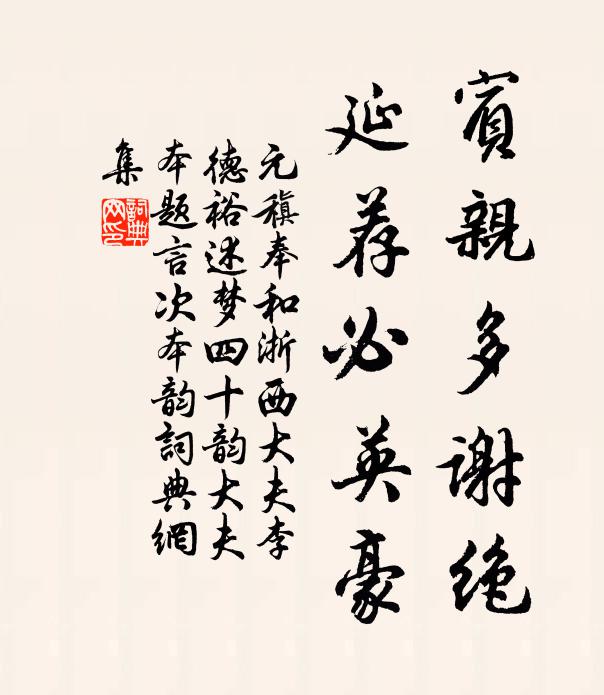 賓親多謝绝
延荐必英豪
元稹奉和浙西大夫李
德裕述梦四十韵大夫
本题言次本韵詞典網
集
詞典
网印